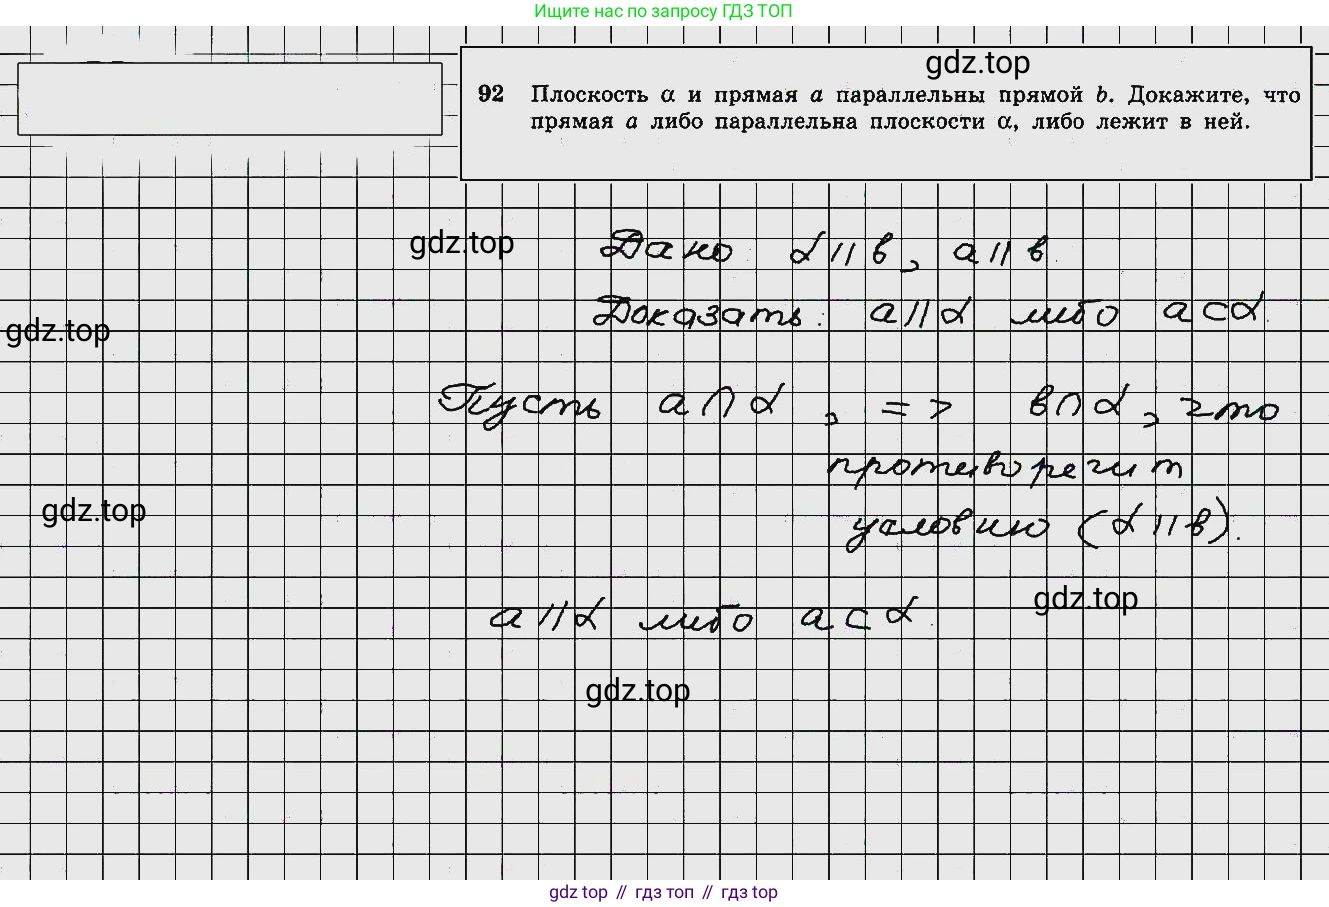 Ищите нас по запросу ГДЗ ТОП
gdz.top
92 Плоскость α и прямая a параллельны прямой b. Докажите, что
прямая a либо параллельна плоскости α, либо лежит в ней.
gdz.top
Дано α || b, a || b.
Доказать: a || α либо a ⊂ α.
gdz.top
Пусть a ∩ α, => b ∩ α, что
противоречит
gdz.top
условию (α || b).
gdz.top
a || α либо a ⊂ α.
gdz.top
gdz top // гдз топ // gdz top